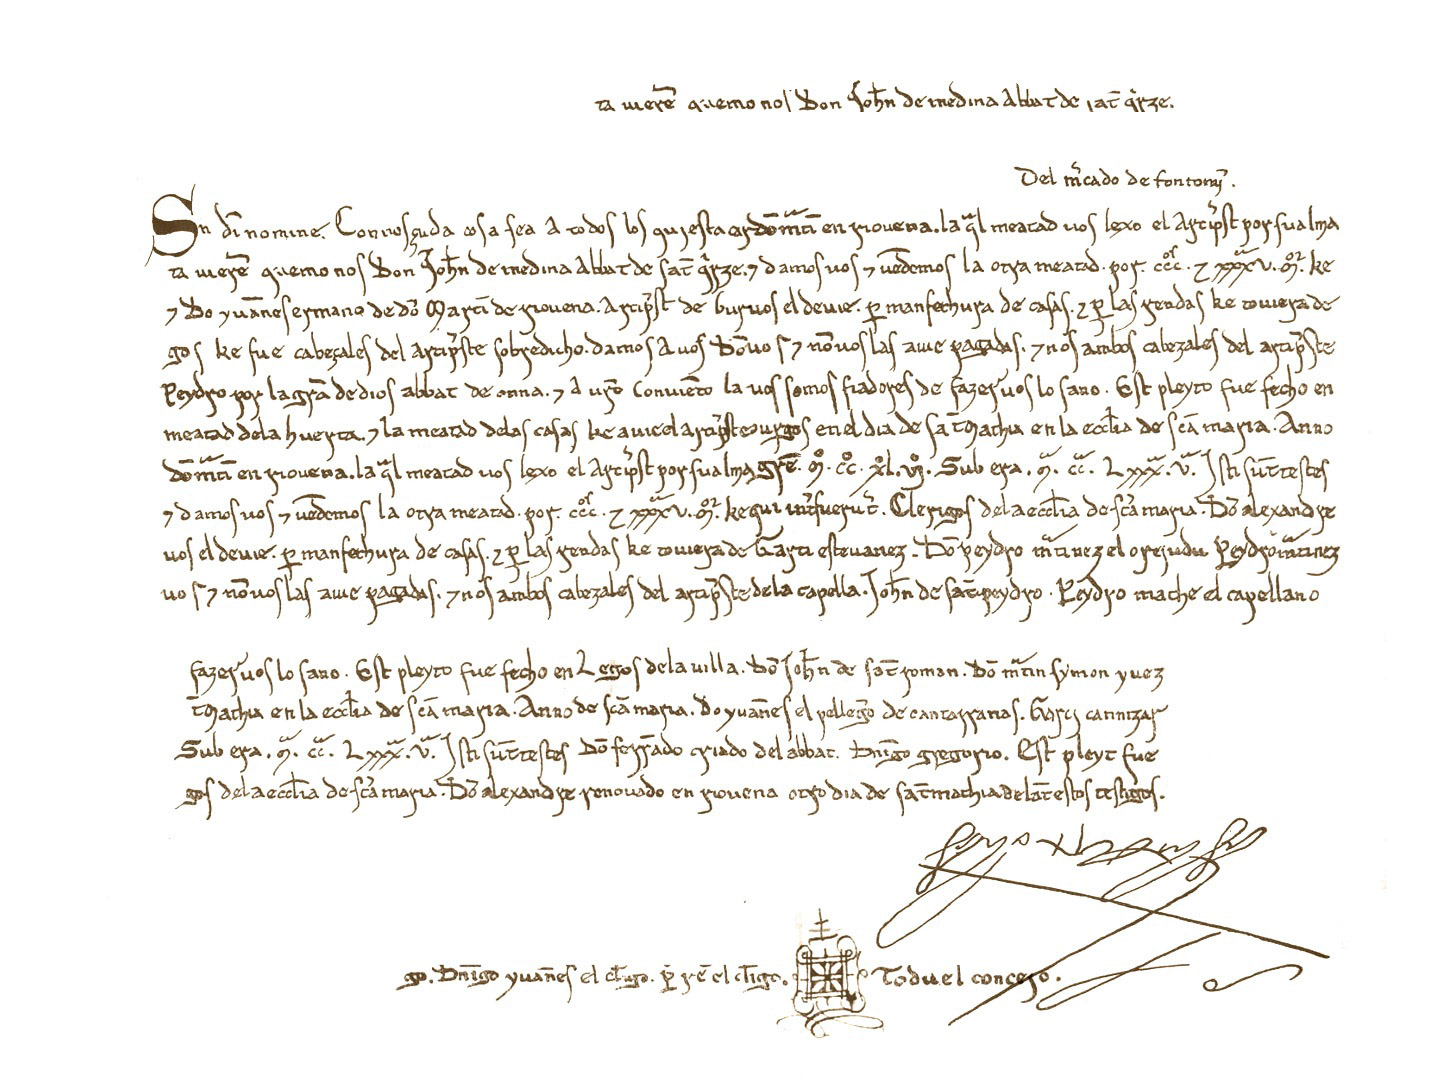 ta uieren quemo nos Don Joh̅n de medina Abbat de sat̅ q̅rze.
Del m̅cado de fontom̅.
Sn di̅ nomine. Connosçuda cosa sea A todos los qui esta do̅m̅ti̅ en riovena. la q̅l meatad vos lexo el Arcip̅st por su alma
ta uieren quemo nos Don Joh̅n de medina Abbat de sat̅ q̅rze. ⁊ damos vos ⁊ ve̅demos la otra meatad. por. ccc. ⁊ xxxv. m̅r. ke
⁊ Do yuan̅es ermano de do̅ Marti̅ de riovena. Arcip̅st de burvos el devie. p̲ manfechura de casas. ⁊ p̲ las rendas ke toviera de
gos ke fue cabezales del arcip̅ste sobredicho. damos A vos Do̅ vo s ⁊ no̅ vos las aue pagadas. ⁊ nos ambos cabezales del arcip̅ste
Peydro por la gra̅ de dios abbat de onna. ⁊ A vr̅o Convie̅to la vos somos fiadores de fazer vos lo sano. Est pleyto fue fecho en
meatad dela huerta. ⁊ la meatad delas casas ke avie el arcip̅ste burgos en el dia de sa̅ Mathia en la ecc̅lia de sc̅a maria. Anno
do̅m̅ti̅ en riovena. la q̅l meatad vos lexo el Arcip̅st por su alma gr̅e. Mº. ccº. xlº. viiº. Sub era. Mª. ccª. Lxxxª. vª. Isti su̅t testes
⁊ damos vos ⁊ ve̅demos la otra meatad. por. ccc. ⁊ xxxv. m̅r. ke qui int̅fueru̅t. Clerigos dela ecc̅lia de sc̅a maria. Do̅ alexandre
vos el devie. p̲ manfechura de casas. ⁊ p̲ las rendas ke toviera de Garti estevanez. Do̅ peydro m̅tinez el orejudu Peydro m̅tinez
vo s ⁊ no̅ vos las aue pagadas. ⁊ nos ambos cabezales del arcip̅ste dela capella. Joh̅n de sat̅ peydro. Peydro mathe el capellano
fazer vos lo sano. Est pleyto fue fecho en Legos dela villa. Do̅ Joh̅n de sat̅ roman. Do̅ m̅tin symon yvez
Mathia en la ecc̅lia de sc̅a maria. Anno de sc̅a maria. Do yuan̅es el pellegº de cantarranas. Garci cannizar
Sub era. Mª. ccª. Lxxxª. vª. Isti su̅t testes Do̅ ferra̅do criado del abbat. Dni̅go gregorio. Est pleyt fue
gos dela ecc̅lia de sc̅a maria. Do̅ alexandre renovado en riovena otro dia de sat̅ mathia dela̅t estos testigos.
go. Dni̅go yuan̅es el cl̅igo. p̲ re̅ el cl̅igo. Todu el concejo.